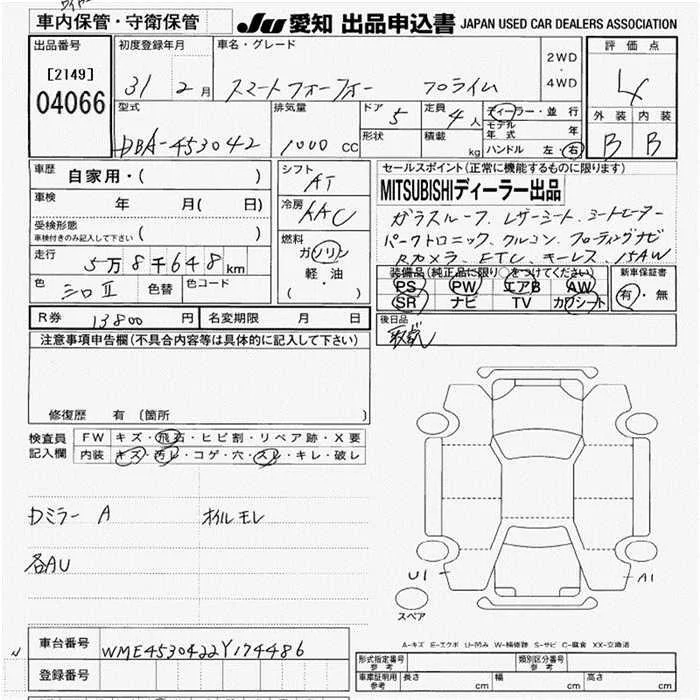 車内保管・守衛保管
JU 愛知 出品申込書 JAPAN USED CAR DEALERS ASSOCIATION
出品番号 初度登録年月 車名・グレード 2WD・4WD 評価点
[2149] 04066
31 2月 スマートフォーフォー プライム
4
型式 排気量 ドア 5 定員 4人 ディーラー・並行
DBA-453042 1000 CC 形状 積載 kg モデル年式 年
ハンドル 左・右
外装 内装
B B
車歴 自家用・( )
車検 年 月( 日)
受検形態 車検付きのみ記入して下さい ( )
走行 5万8千648km
色 シロII 色替 色コード
シフト AT
冷房 AAC
燃料 ガソリン 軽・油 ( ・ )
セールスポイント(正常に機能するものに限ります)
MITSUBISHIディーラー出品
ガラスルーフ、レザーシート、シートヒーター
パークトロニック、クルコン、フローティングナビ
Rカメラ、ETC、キーレス、15AW
装備品(純正品に限り○をつけてください) 新車保証書
PS PW エアB AW 有・無
SR ナビ TV カワシート
R券 13800円 名変期限 月 日
後日品
取説
注意事項申告欄(不具合内容等は具体的に記入して下さい)
修復歴 有 (箇所 )
検査員記入欄 FW キズ・飛石・ヒビ割・リペア跡・X要
内装 キズ・汚レ・コゲ・穴・スレ・キレ・破レ
Dミラー A オイルモレ
各AU
U1 A1
スペア
A-キズ E-エクボ U-凹み W-補修跡 S-サビ C-腐食 XX-交換済
車台番号 WME4530422Y174486
登録番号
形式指定番号 参考 類別区分番号 参考
車庫証明用 参考 長さ cm 幅 cm 高さ cm